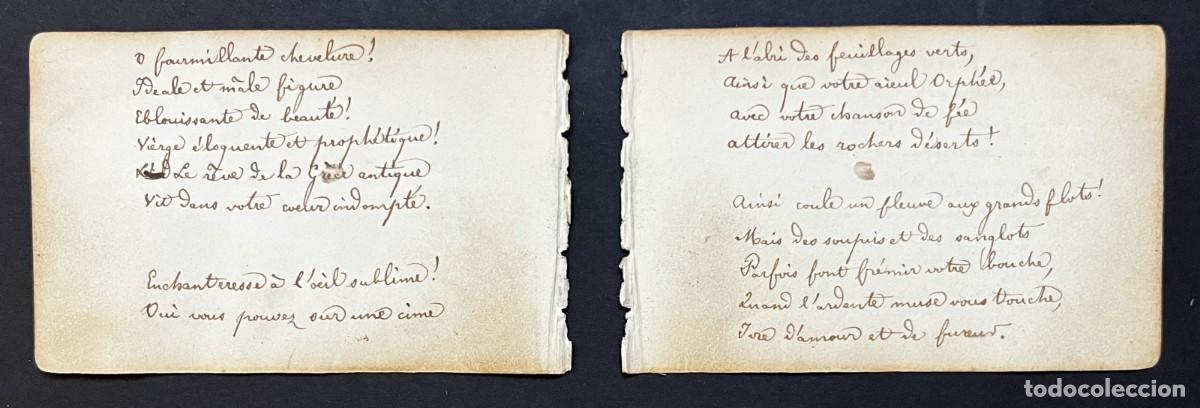 O fourmillante chevelure!
Ideale et mâle figure
Eblouissante de beauté!
Vierge éloquente et prophétique!
Le rêve de la Grèce antique
Vit dans votre cœur indompté.
Enchanteresse à l'œil sublime!
Oui vous pouvez sur une cime
A l'abri des feuillages verts,
Ainsi que votre aieul Orphée,
avec votre chanson de fée
attirer les rochers déserts!
Ainsi coule un fleuve aux grands flots!
Mais des soupirs et des sanglots
Parfois font frémir votre bouche,
Quand l'ardente muse vous touche,
Ivre d'amour et de fureur.
todocoleccion